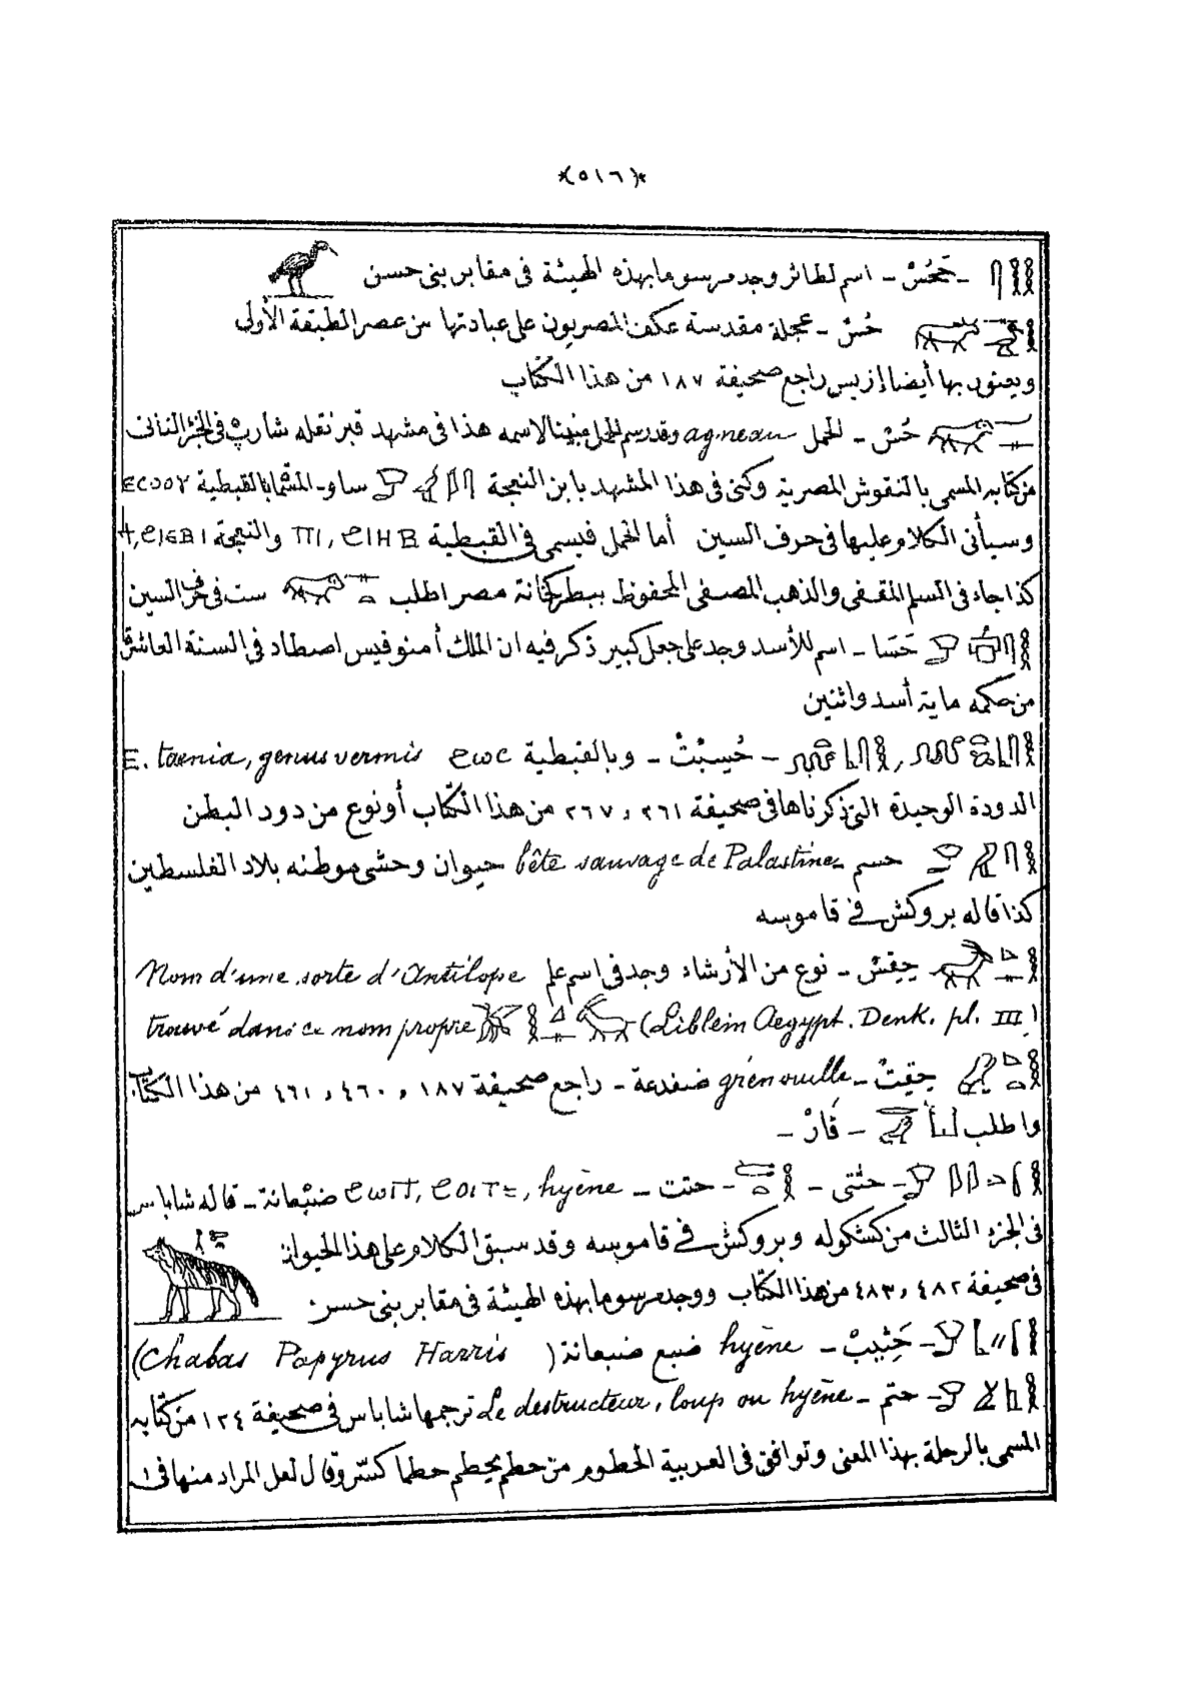 *(٥١٦)*
ـ حَحُسْ ـ اسم لطائر وجد مرسوما بهذه الهيئة فى مقابر بنى حسن
حُسْ ـ عجلة مقدسة عكف المصريون على عبادتها من عصر الطبقة الأولى
ويعنون بها أيضا إزيس راجع صحيفة ١٨٧ من هذا الكتاب
حُسْ ـ الحمل agneau وقد رسم الحمل مبينا لاسمه هذا فى مشهد قبر نقله شارپ فى الجزء الثانى
من كتابه المسمى بالنقوش المصرية وكنى فى هذا المشهد بابن النعجة ساو ـ بالقبطية ECOOY
وسيأتى الكلام عليها فى حرف السين أما الحمل فيسمى فى القبطية ΠΙ, ϨΙΗΒ والنعجة
كذا جاء فى السلم المقفى والذهب المصفى المحفوظ ببطركخانة مصر اطلب ست فى حرف السين
حَسَا ـ اسم للأسد وجد على جعل كبير ذكر فيه ان الملك أمنوفيس اصطاد فى السنة العاشرة
من حكمه ماية أسد واثنين
ـ حُسِبْتْ ـ وبالقبطية ϨωC E. taenia, genus vermis
الدودة الوحيدة التى ذكرناها فى صحيفة ٢٦١ و ٢٦٧ من هذا الكتاب أو نوع من دود البطن
حسم bête sauvage de Palastine حيوان وحشى موطنه بلاد الفلسطين
كذا قاله بروكش فى قاموسه
حِقِسْ ـ نوع من الأرشاء وجد فى اسم علم Nom d'une sorte d'Antilope
trouvé dans ce nom propre (Liblein Aegypt. Denk. pl. III)
حِقِتْ ـ grénouille ضفدعة ـ راجع صحيفة ١٨٧ و ٤٦٠ و ٤٦١ من هذا الكتاب
واطلب ـ قَارْ ـ
ـ حتتى ـ ـ حتت ـ ϨωΙΤ, ϨΟΙΤΕ, hyène ضبعانة ـ قاله شاباس
فى الجزء الثالث من كشكوله وبروكش فى قاموسه وقد سبق الكلام على هذا الحيوان
فى صحيفة ٤٨٢ و ٤٨٣ من هذا الكتاب ووجد مرسوما بهذه الهيئة فى مقابر بنى حسن
ـ حَتِيبْ ـ hyène ضبع ضبعانة (Chabas Papyrus Harris)
ـ حتم ـ Le destructeur, loup ou hyène ترجمها شاباس فى صحيفة ١٢٤ من كتابه
المسمى بالرحلة بهذا المعنى وتوافق فى العربية الحطوم من حطم يحطم حطما كسّر وقال لعل المراد منها فى